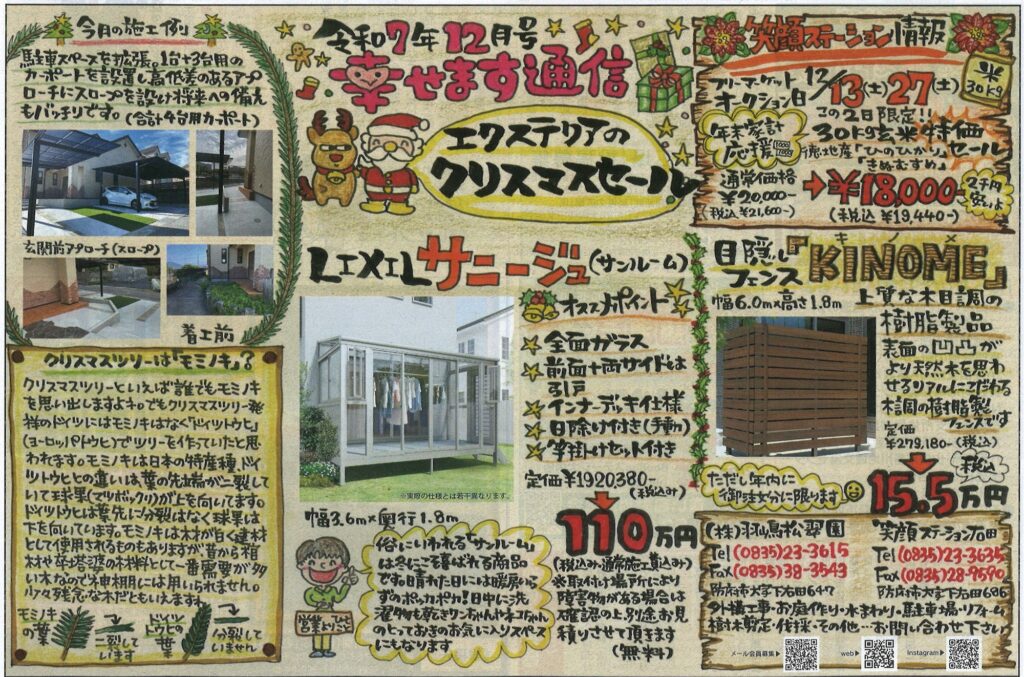 今月の施工例
駐車スペースを拡張。1台→3台用の
カーポートを設置し高低差のあるアプ
ローチにスロープを設け将来への備え
もバッチリです。(合計4台用カーポート)
玄関前アプローチ(スロープ)
着工前
クリスマスツリーは「モミノキ」?
クリスマスツリーといえば誰でもモミノキ
を思い出しますよネ。でもクリスマスツリー発
祥のドイツにはモミノキはなく「ドイツトウヒ」
(ヨーロッパトウヒ)でツリーを作っていたと思
われます。モミノキは日本の特産種、ドイ
ツトウヒとの違いは葉の先端が二裂して
いて球果(マツボックリ)が上を向いてます。
ドイツトウヒは葉先に分裂はなく球果は
下を向いています。モミノキは木材が白く建材
として使用されるものもありますが昔から棺
材や卒塔婆の材料として一番需要が多
い木なので神棚用には用いられません。
少々残念な木だともいえます。
モミノキの葉
→二裂しています
ドイツトウヒの葉
→分裂していません
令和7年12月号
幸せます通信
エクステリアの
クリスマスセール
LIXILサニージュ(サンルーム)
※実際の仕様とは若干異なります。
幅3.6m×奥行1.8m
オススメポイント
全面ガラス
前面+両サイドとは
引戸
インナーデッキ仕様
日除け付き(手動)
竿掛けセット付き
定価¥1920380-
(税込み)
110万円
(税込み・通常施工費込み)
※取付け場所により
障害物がある場合は
確認の上別途お見
積りさせて頂きます
(無料)
営業よりひとこと
俗にいわれる「サンルーム」
は冬にこそ喜ばれる商品
です。晴れた日には暖房いら
ずのポッカポカ!日中に洗
濯物も乾きワンちゃんやネコちゃん
のとっておきのお気に入りスペース
にもなります
笑顔ステーション情報
フリーマーケット
オークション日
12/13(土)27(土)
米
30kg
この2日限定!!
年末家計
応援
30kg玄米特価
セール
徳地産「ひのひかり」
「きぬむすめ」
通常価格
¥20,000-
(税込¥21,600-)
→¥18,000-
(税込 ¥19,440-)
2千円
安いよ
目隠し
フェンス
『KINOME』
キノメ
幅6.0m×高さ1.8m
上質な木目調の
樹脂製品
表面の凹凸が
より天然木を思わ
せるリアルにこだわる
木調の樹脂製
フェンスです
定価
¥279,180-(税込)
ただし年内に
御注文分に限ります
15.5万円
税込
(株)羽嶋松翠園
Tel(0835)23-3615
Fax(0835)38-3543
防府市大字下右田647
笑顔ステーション右田
Tel(0835)23-3635
Fax(0835)28-9590
防府市大字下右田686
外構工事・お庭作り・水まわり・駐車場・リフォーム
樹木剪定・伐採・その他…お問い合わせ下さい
メール会員募集▶
web▶
Instagram▶